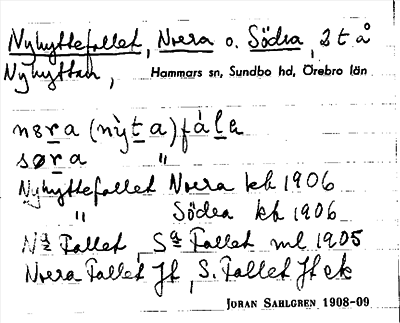 Nyhyttefallet, Norra o. Södra, 2 t å
Nyhyttan, Hammars sn, Sundbo hd, Örebro län
nɔra (nỳta) fála
søra "
Nyhyttefallet Norra kb 1906
" Södra kb 1906
Na Fallet, Sa Fallet ml 1905
Norra Fallet Jt, S. Fallet Jt ek
JÖRAN SAHLGREN 1908-09